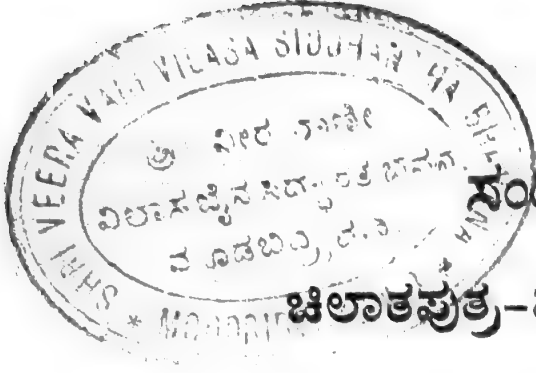 SHRI VEERA VANI VILASA SIDDHANTHA
ಶ್ರೀ ವೀರ ವಾಣೀ
ವಿಲಾಸ ಜೈನ ಸಿದ್ಧಾಂತ ಭವನ
ಮೂಡಬಿದ್ರಿ, ದ.ಕ
ಚಿಲಾತಪುತ್ರ-